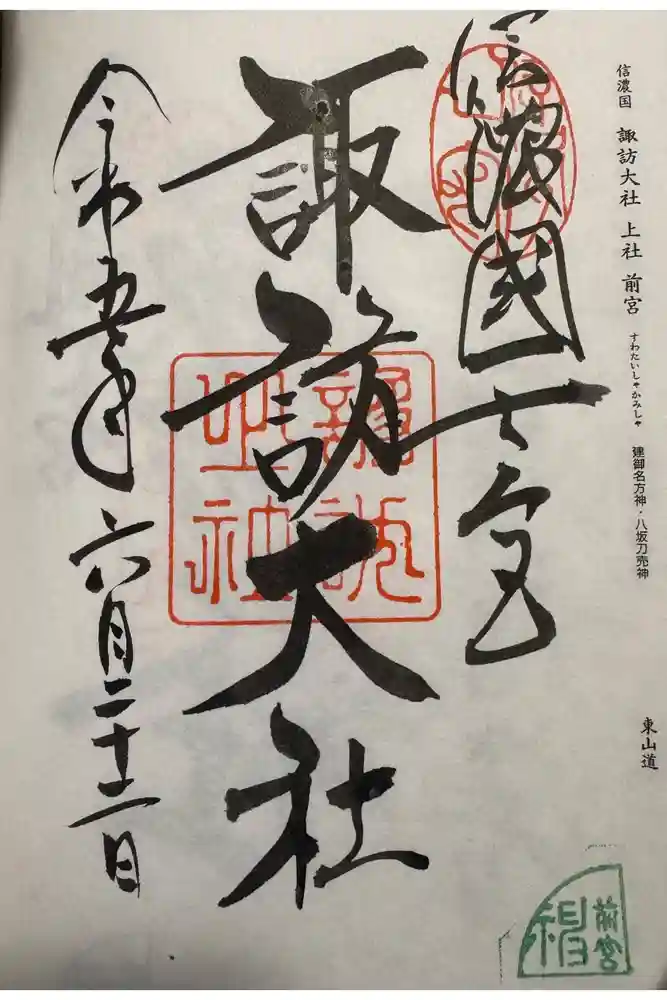 信濃国 諏訪大社 上社 前宮 すわたいしゃかみしゃ 建御名方神・八坂刀売神 東山道
信濃國一之宮
諏訪大社
令和五年六月二十二日
前宮